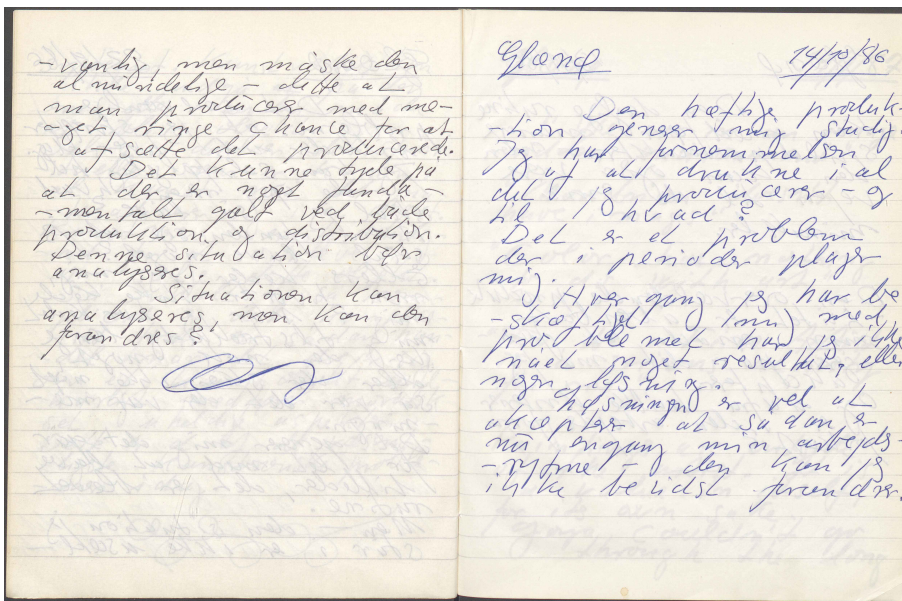 -vanlig, men måske den
almindelige - dette at
man producerer med me-
-get ringe chance for at
afsætte det producerede.
Det kunne tyde på
at der er noget funda-
-mentalt galt ved både
produktion og distribution.
Denne situation bør
analyseres.
Situationen kan
analyseres, men kan den
forandres?
Gland 14/10/86
Den hæftige produk-
-tion generer mig stadig.
Jeg har fornemmelsen
af at drukne i al
det jeg producerer - og
til hvad?
Det er et problem
der i perioder plager
mig.
Hver gang jeg har be
-skæftiget mig med
problemet har jeg ikke
nået noget resultat, eller
nogen løsning.
Løsningen er vel at
akceptere at sådan er
nu engang min arbejds-
-rytme - den kan jeg
ikke bevidst forandre.